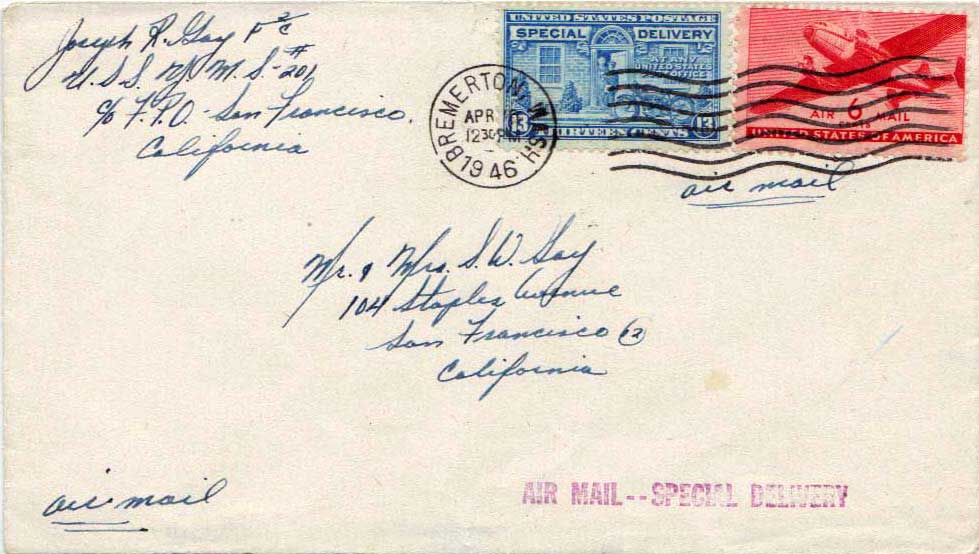 Joseph R. Gay F 2/c
U.S.S. Y.M.S.-201
c/o F.P.O. - San Francisco,
California
UNITED STATES POSTAGE
SPECIAL DELIVERY
AT ANY
UNITED STATES
POST OFFICE
13 THIRTEEN CENTS 13
AIR 6 MAIL
CENTS
UNITED STATES OF AMERICA
BREMERTON, WASH.
APR
12 30 PM
1946
air mail
Mr. & Mrs. S. W. Gay
104 Staples Avenue
San Francisco 12
California
air mail
AIR MAIL--SPECIAL DELIVERY